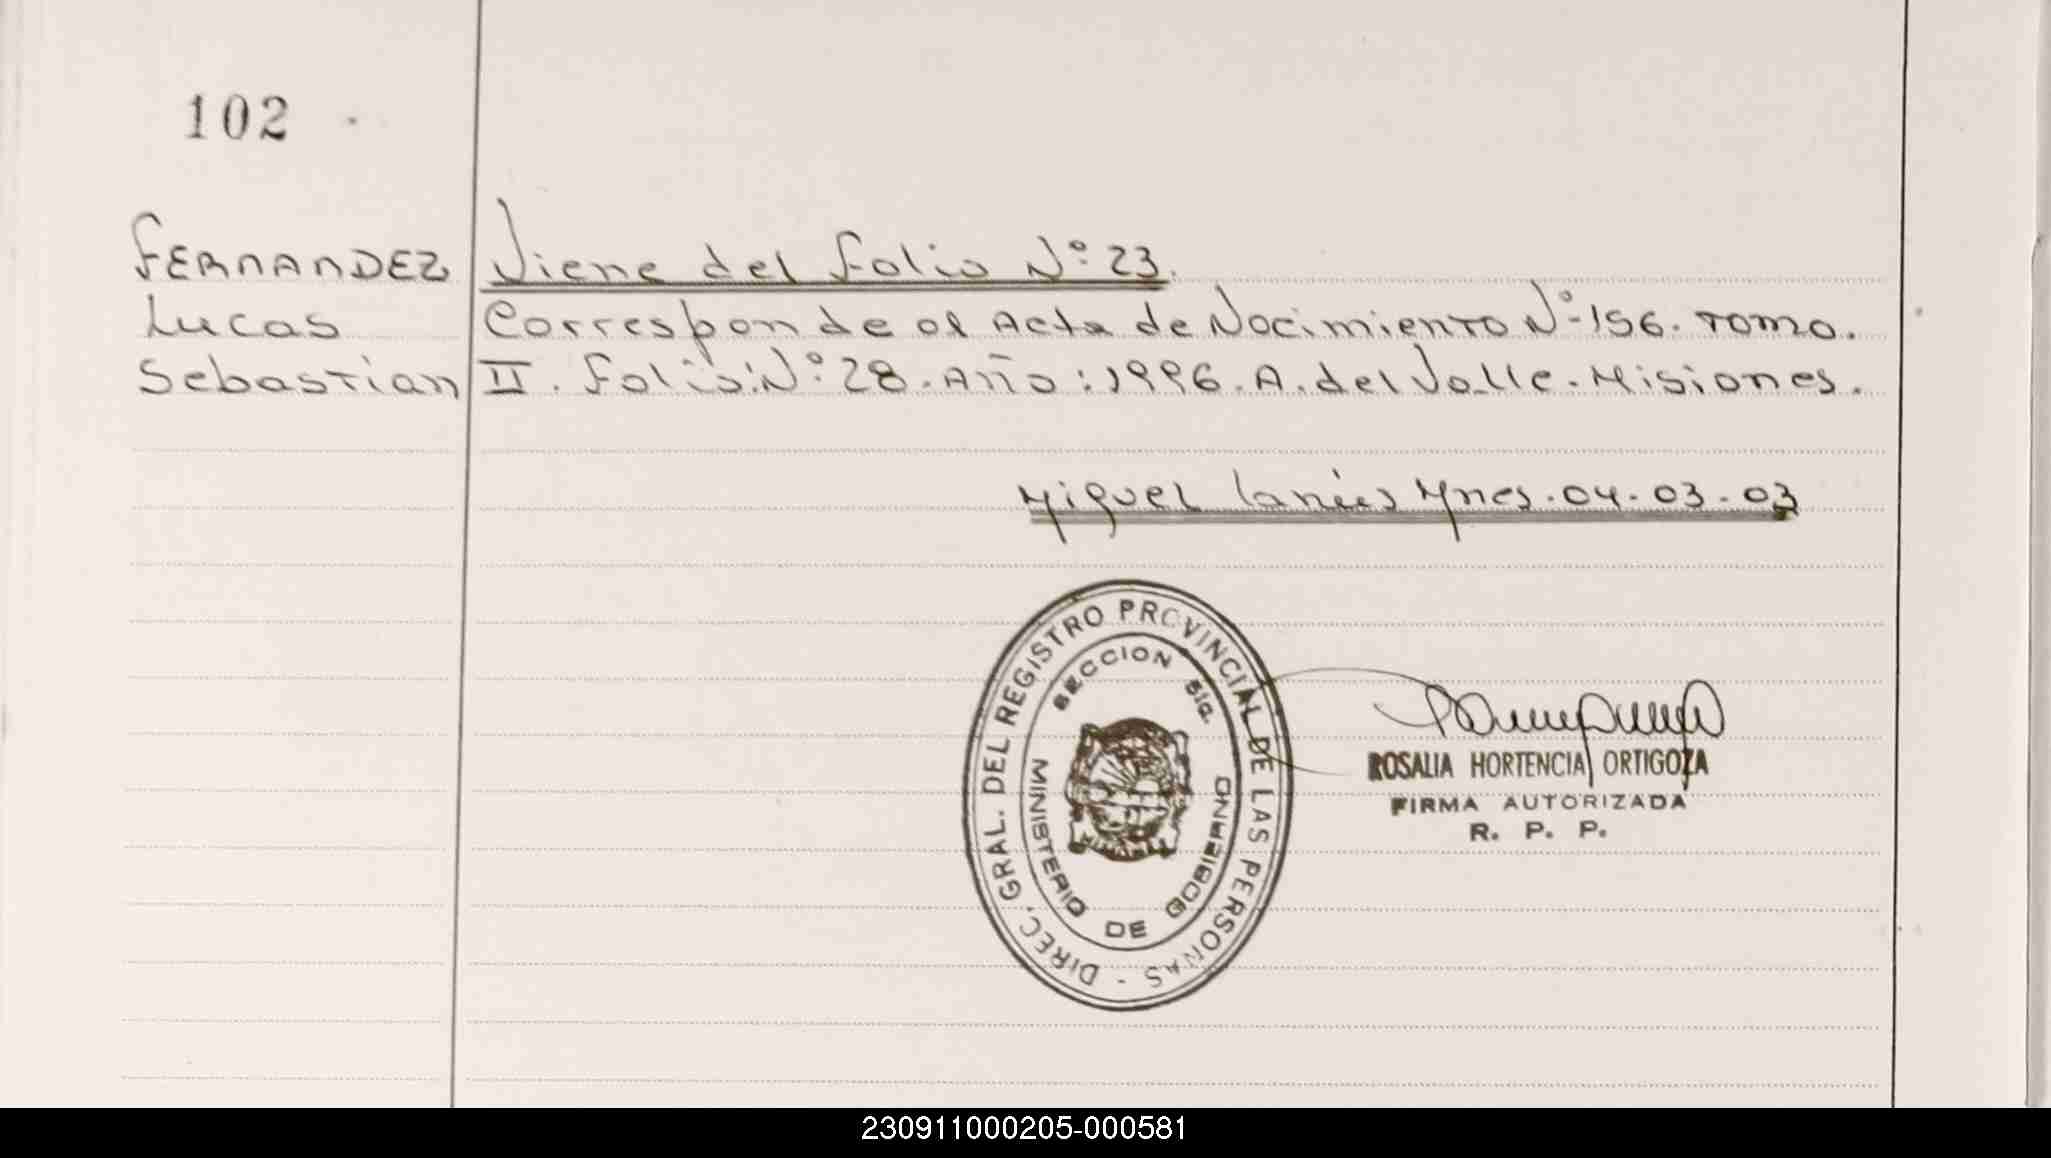 102
FERNANDEZ
Lucas
Sebastian
Viene del Folio Nº 23.
Corresponde al Acta de Nacimiento Nº 156. Tomo.
II. Folio: Nº: 28. Año: 1996. A. del Valle. Misiones.
Miguel Ynes. 04-03-03
DIREC. GRAL. DEL REGISTRO PROVINCIAL DE LAS PERSONAS -
SECCION
MINISTERIO DE GOBIERNO
ROSALIA HORTENCIA ORTIGOZA
FIRMA AUTORIZADA
R. P. P.
230911000205-000581